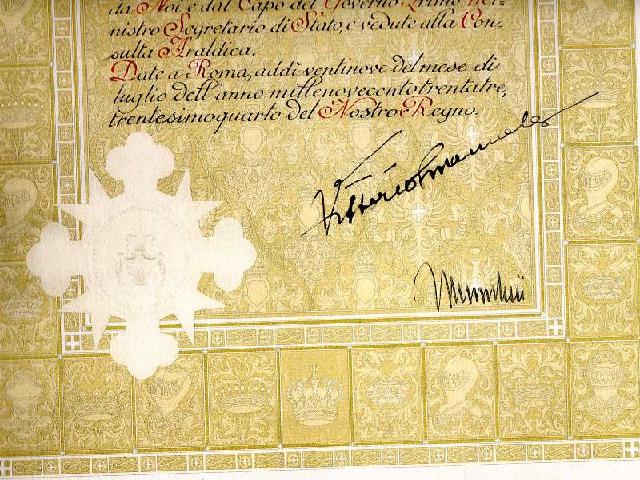 da Noi e dal Capo del Governo Primo Mi-
nistro Segretario di Stato, e vedute alla Con-
sulta Araldica.
Date a Roma, addì ventinove del mese di
luglio dell'anno millenovecentotrentatre,
trentesimoquarto del Nostro Regno.
Vittorio Emanuele
Mussolini